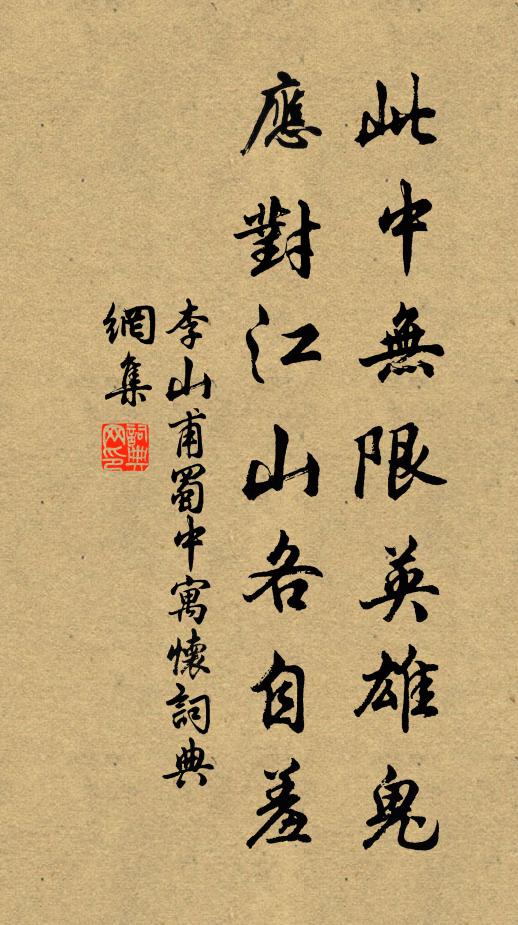 此中無限英雄鬼
應對江山各自羞
李山甫蜀中寓懷詞典
網集
詞典
网印